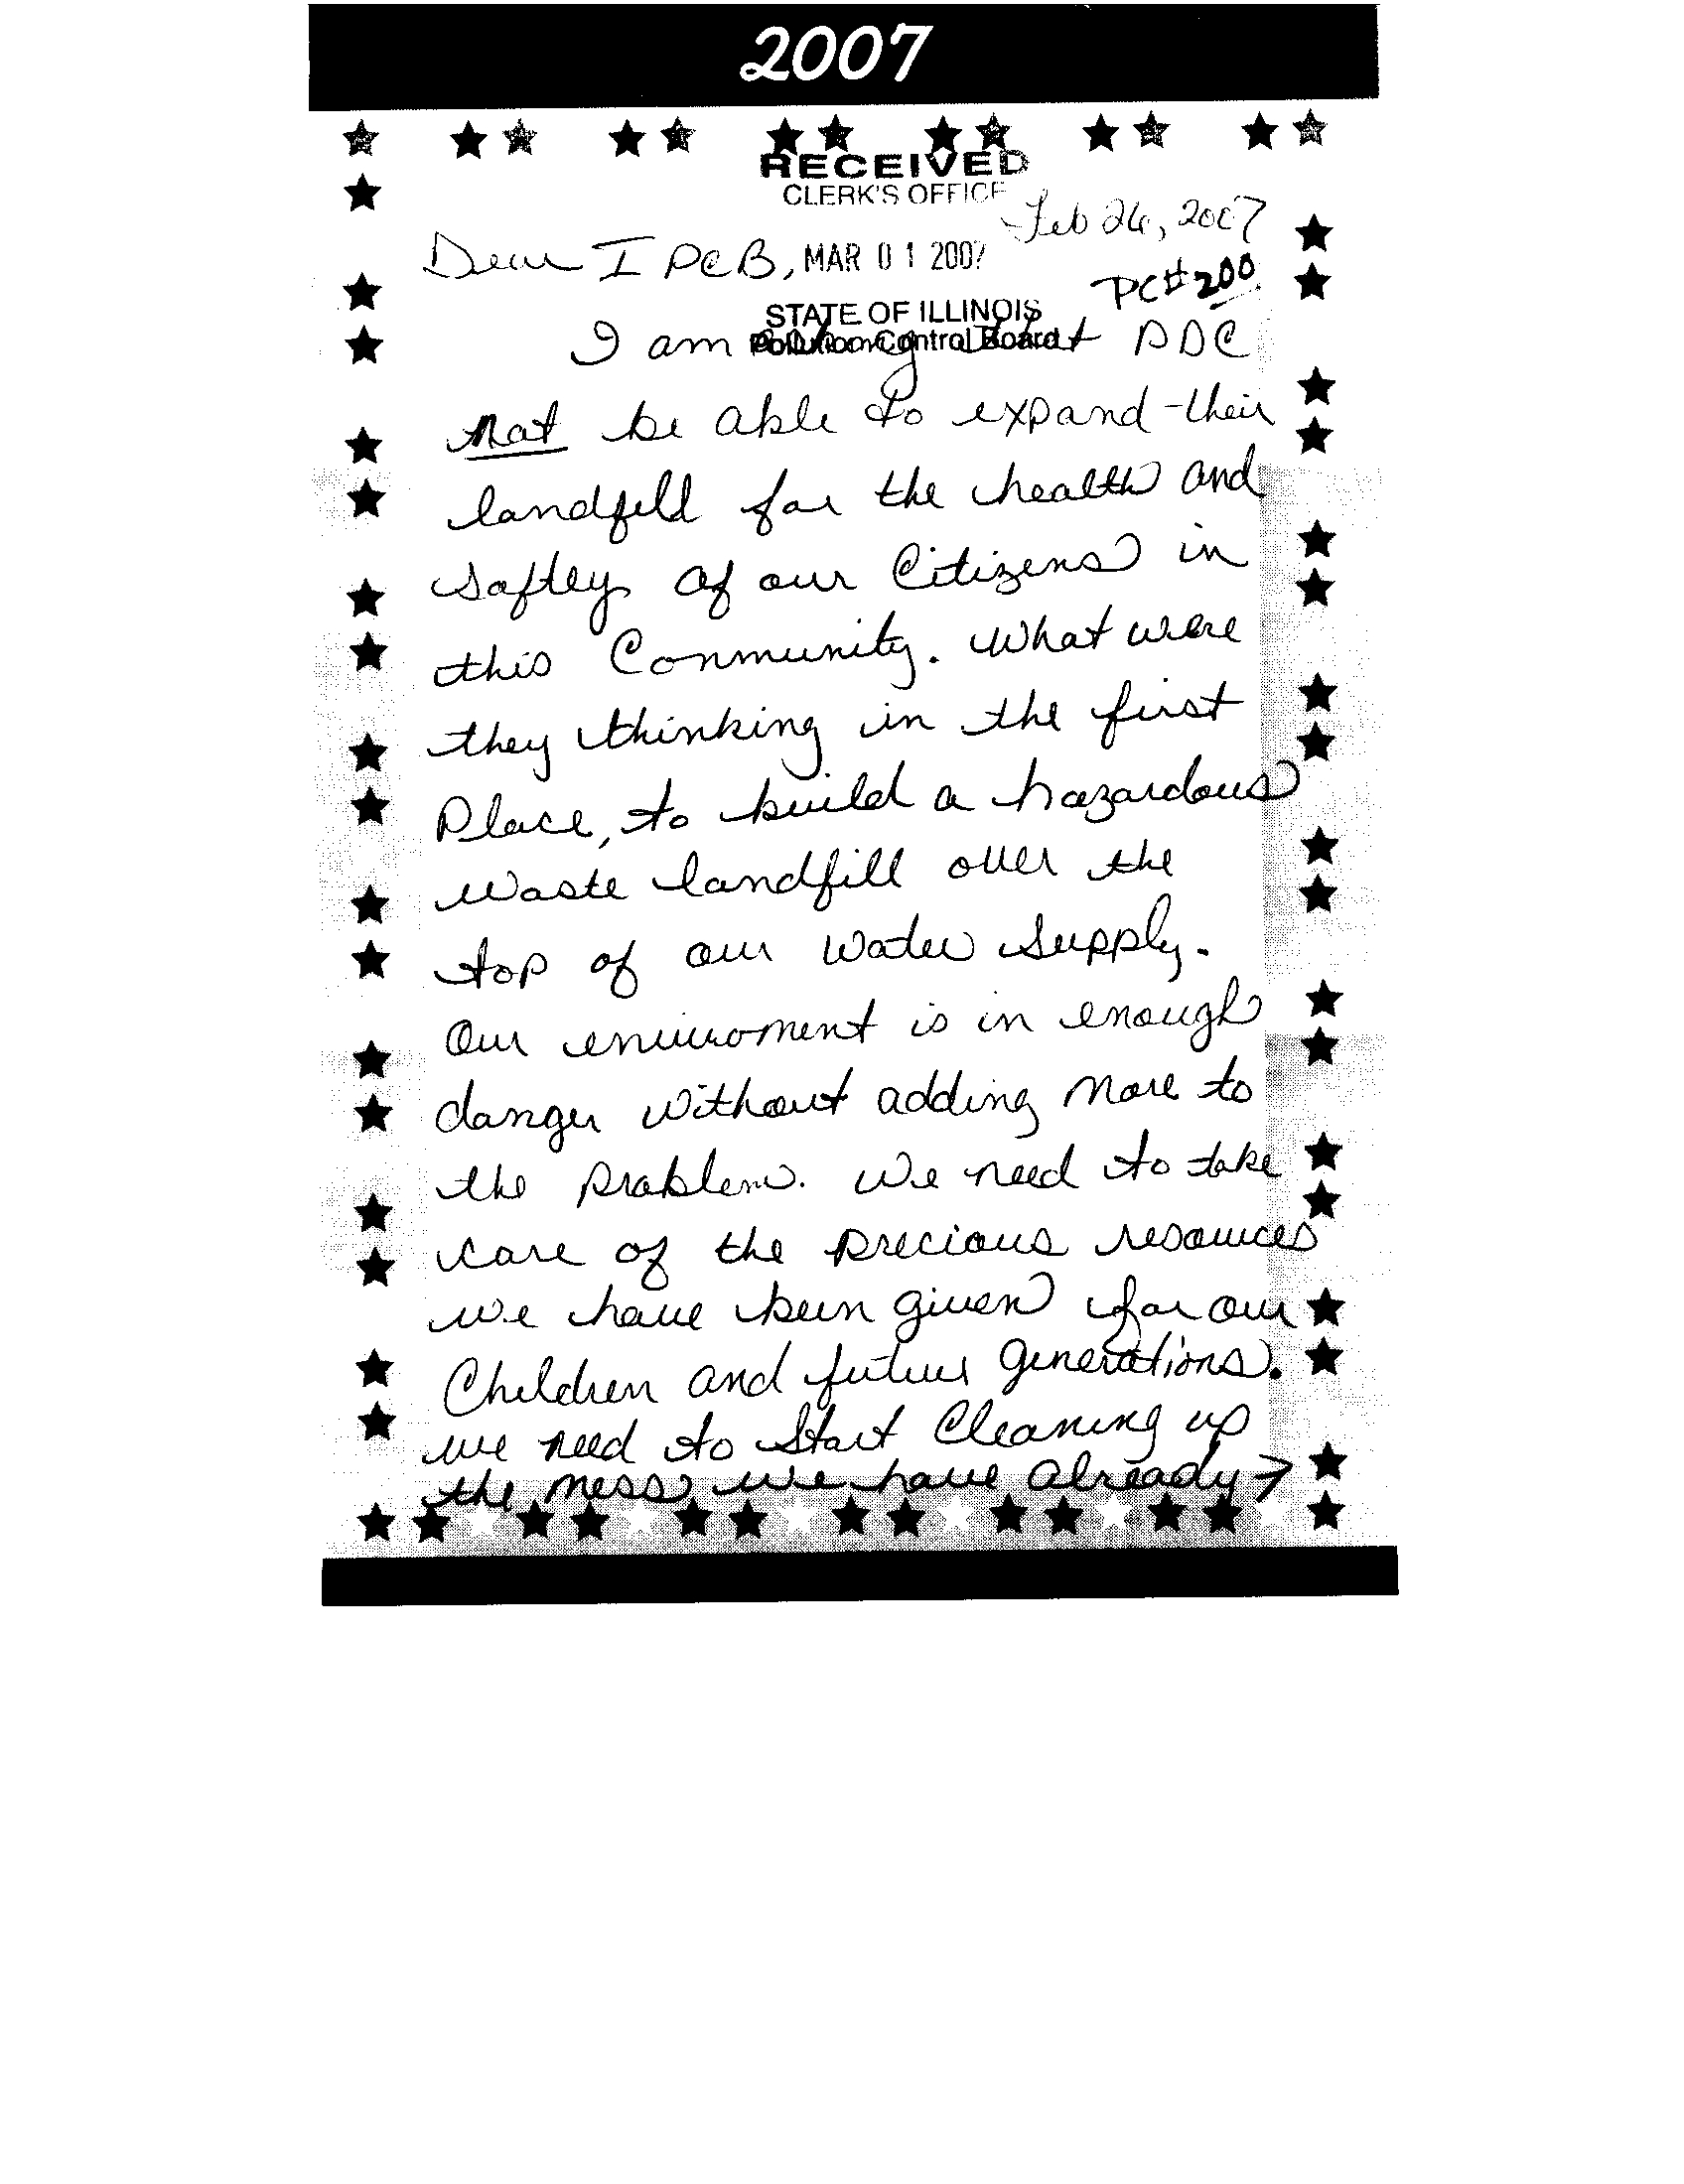 2007
RECEIVED
CLERK'S OFFICE
Feb 26, 2007
Dear IPCB, MAR 01 2007
PC#200
STATE OF ILLINOIS
Pollution Control Board
I am asking that PDC
not be able to expand their
landfill for the health and
saftey of our Citizens in
this Conmunity. What were
they thinking in the first
Place, to build a hazardous
waste landfill over the
top of our water supply.
Our enviroment is in enough
danger without adding more to
the problem. We need to take
care of the precious resources
we have been given for our
Children and future generations.
we need to start Cleaning up
the mess we have already →